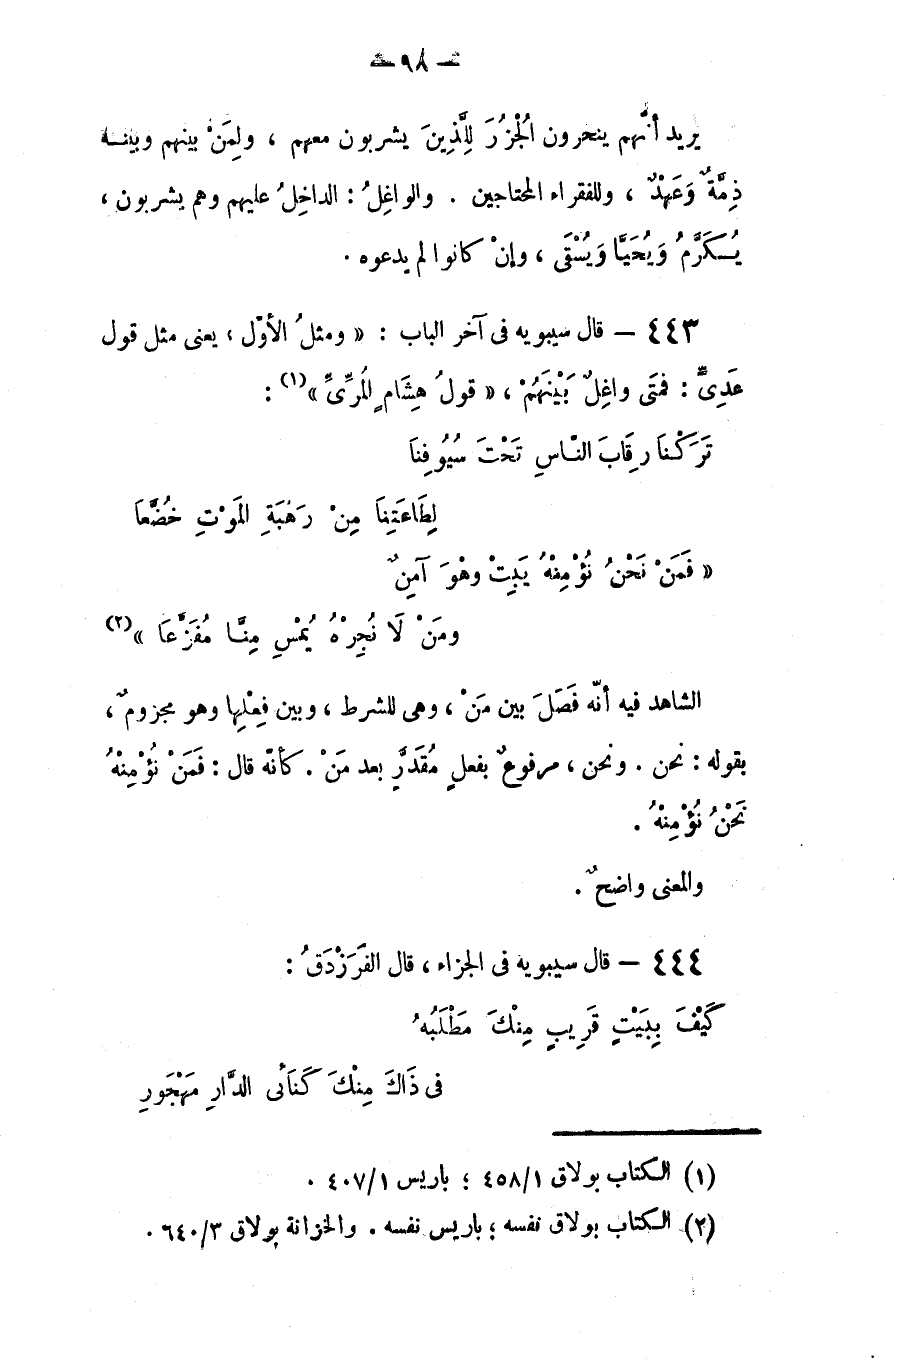 — ٩٨ —
يريد أنَّهم ينحرون الْجُزُرَ لِلَّذِينَ يشربون معهم ، ولِمَنْ بينهم وبينـه
ذِمَّةٌ وَعَهْدٌ ، وللفقراء المحتاجين . والواغِلُ : الداخِلُ عليهم وهم يشربون ،
يُـكَرَّمُ وَيُحَيَّا وَيُسْقَى ، وإنْ كانوا لم يدعوه .
٤٤٣ — قال سيبويه فى آخر الباب : « ومثلُ الأوّل ، يعنى مثل قول
عَدِىٍّ : فمَتَى واغِلٌ بَيْنَهُمْ ، « قولُ هِشَامٍ المُرِّىِّ »(١) :
تَرَكْـنَا رِقَابَ النّـاسِ تَحْتَ سُيُوفِنَا
لِطَاعَتِنَا مِنْ رَهْبَةِ المَوْتِ خُضَّعَا
« فَمَنْ نَحْنُ نُؤْمِنْهُ يَبِتْ وهْوَ آمِنٌ
ومَنْ لَا نُجِرْهُ يُمْسِ مِنَّـا مُفَزَّعَا »(٢)
الشاهد فيه أنّه فَصَلَ بين مَنْ ، وهى للشرط ، وبين فِعْلِها وهو مجزومٌ ،
بقوله : نحن . ونحن ، مرفوعٌ بفعلٍ مُقَدَّرٍ بعد مَنْ . كأنّه قال : فَمَنْ نُؤْمِنْهُ
نَحْنُ نُؤْمِنْهُ .
والمعنى واضحٌ .
٤٤٤ — قال سيبويه فى الجزاء ، قال الفَرَزْدَقُ :
كَيْفَ بِبَيْتٍ قَرِيبٍ مِنْكَ مَطْلَبُهُ
فى ذَاكَ مِنْكَ كَنَائى الدَّارِ مَهْجُورِ
(١) الـكتاب بولاق ٤٥٨/١ ؛ باريس ٤٠٧/١ .
(٢) الـكتاب بولاق نفسه ؛ باريس نفسه . والخزانة بولاق ٦٤٠/٣ .